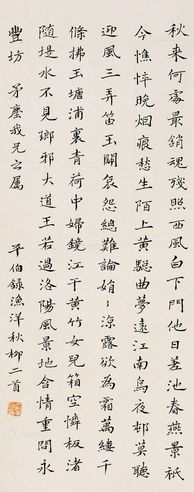 秋來何處最銷魂殘照西風白下門他日差池春燕景祇
今憔悴晚烟痕愁生陌上黃驄曲夢遠江南烏夜邨莫聽
迎風三弄笛玉關哀怨總難論娟〻涼露欲為霜萬縷千
條拂玉塘浦裏青荷中婦鏡江干黃竹女兒箱空憐板渚
隨堤水不見瑯邪大道王若過洛陽風景地含情重問永
豐坊 矛塵我兄之屬
平伯錄漁洋秋柳二首